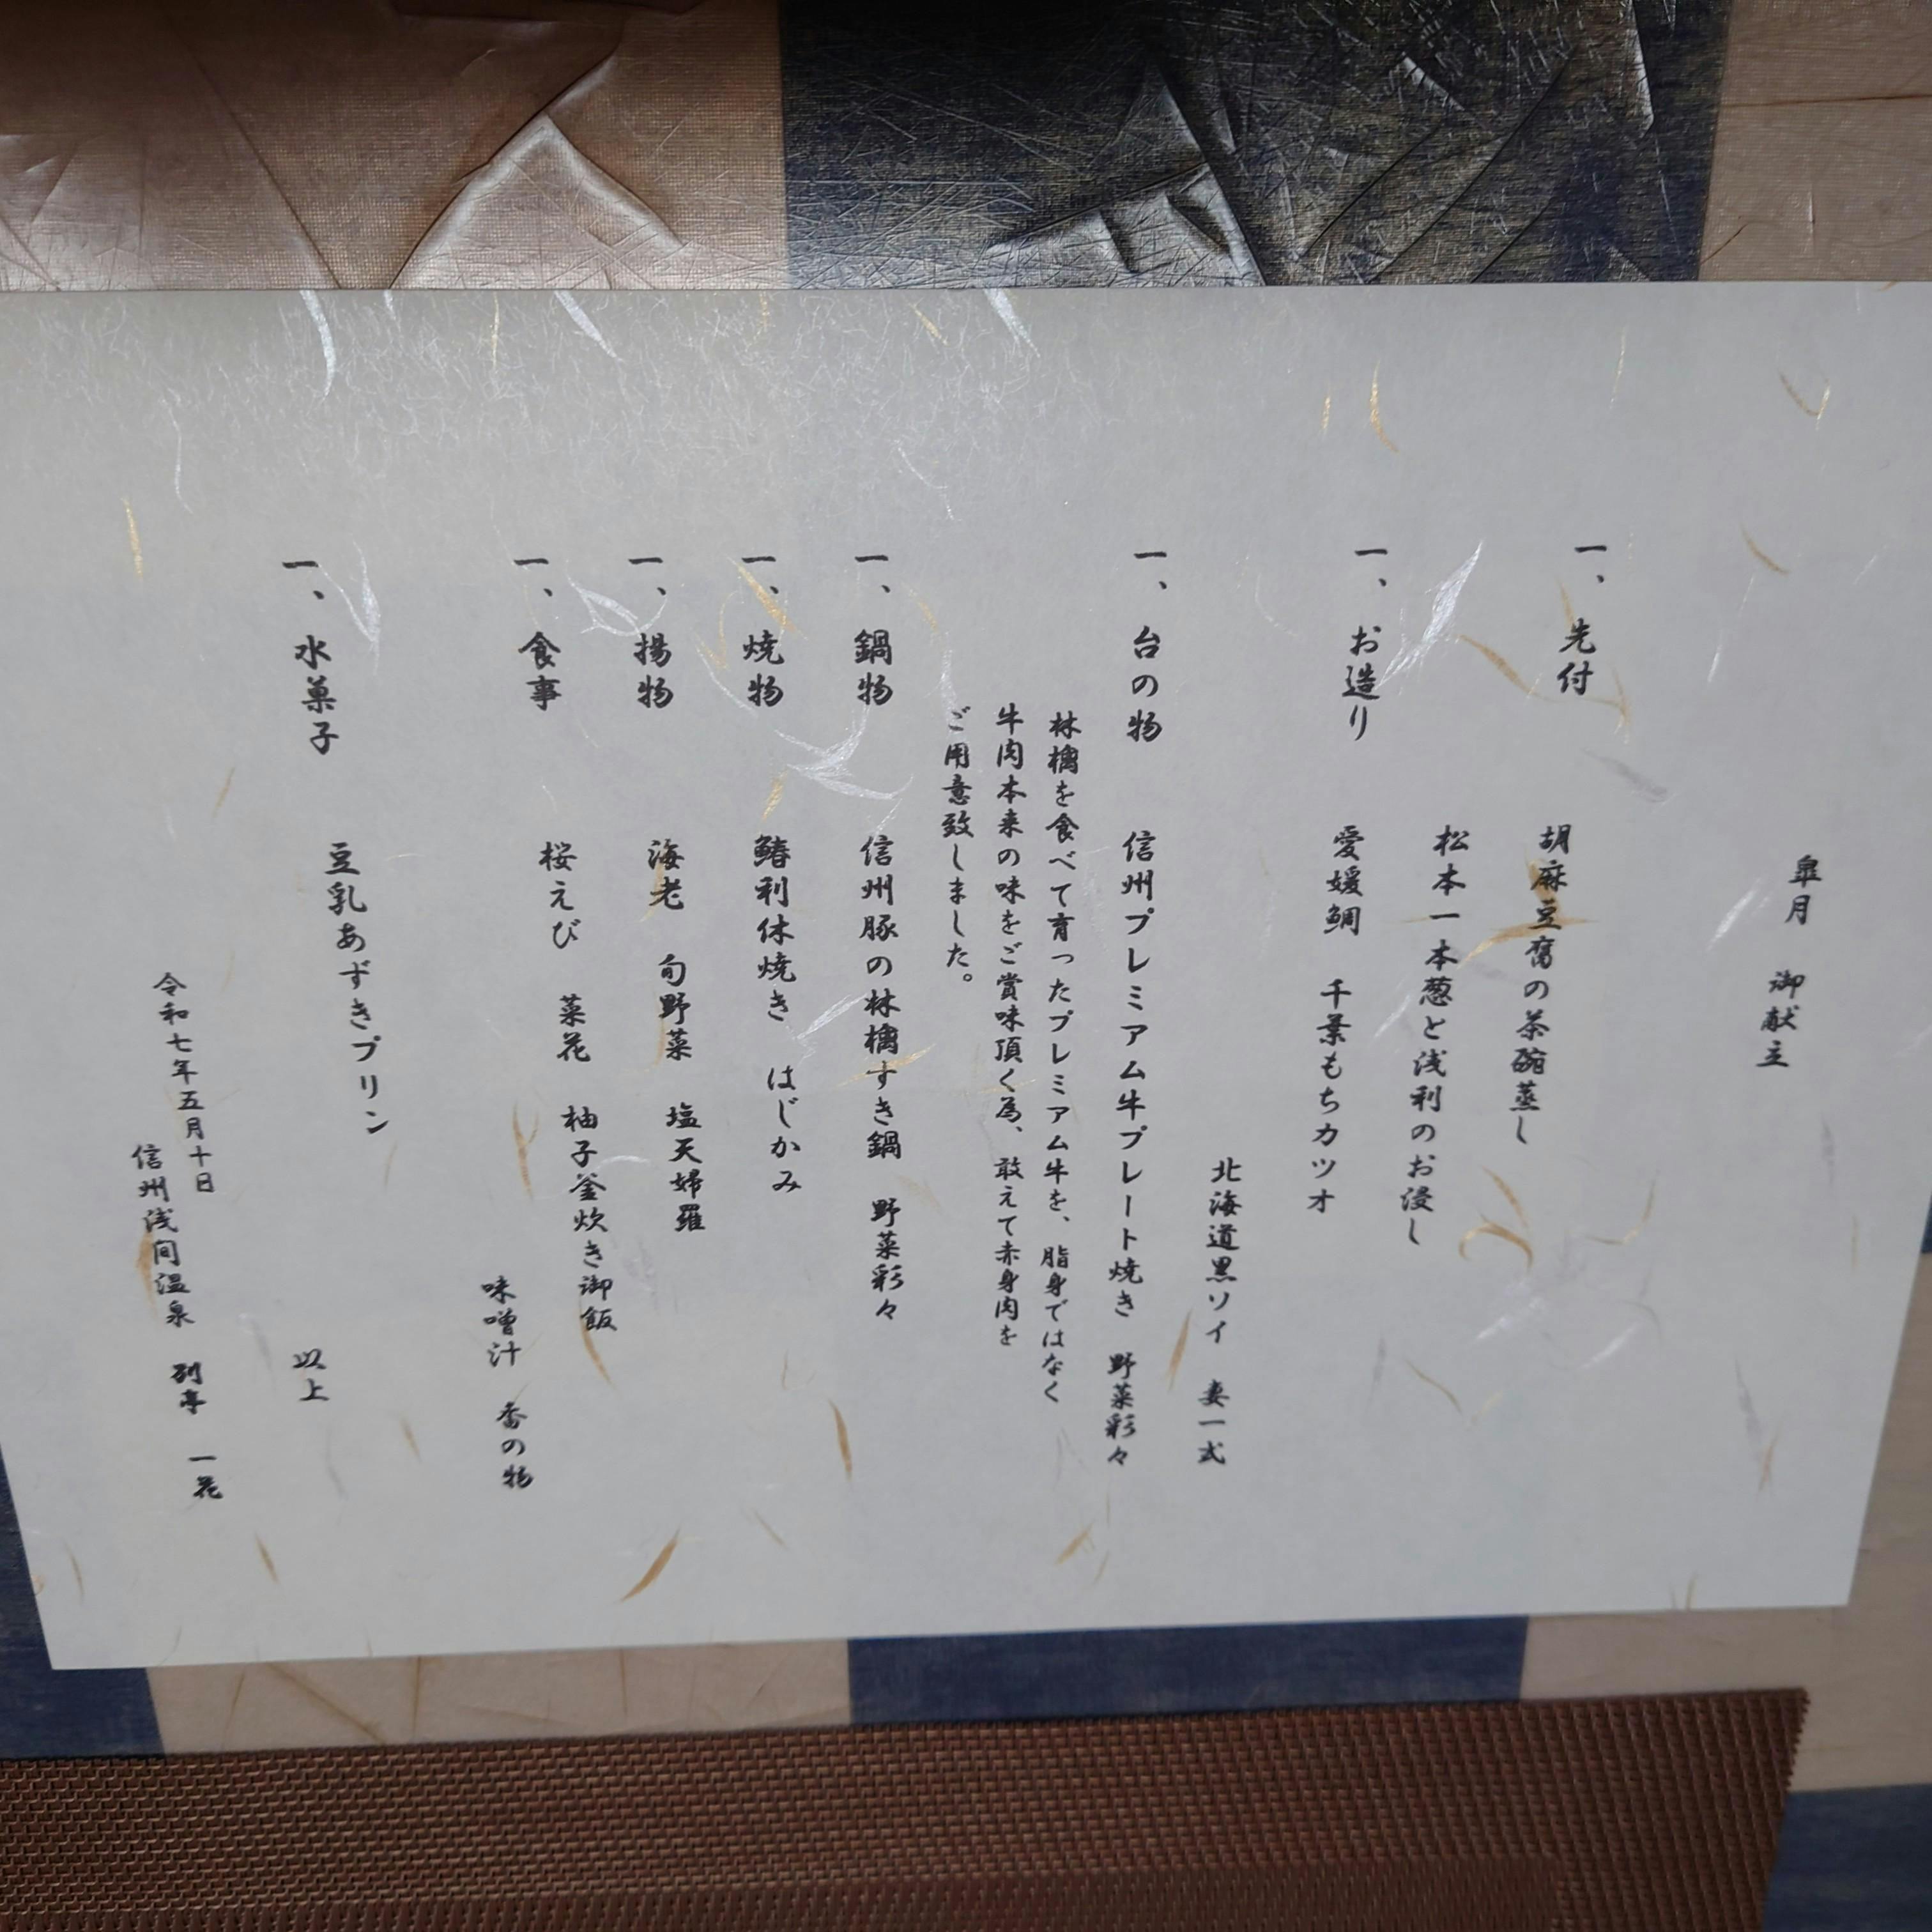 皐月 御献立
一、先付 胡麻豆腐の茶碗蒸し
松本一本葱と浅利のお浸し
一、お造り 愛媛鯛 千葉もちカツオ
北海道黒ソイ 妻一式
一、台の物 信州プレミアム牛プレート焼き 野菜彩々
林檎を食べて育ったプレミアム牛を、脂身ではなく
牛肉本来の味をご賞味頂く為、敢えて赤身肉を
ご用意致しました。
一、鍋物 信州豚の林檎すき鍋 野菜彩々
一、焼物 鰆利休焼き はじかみ
一、揚物 海老 旬野菜 塩天婦羅
一、食事 桜えび 菜花 柚子釜炊き御飯
味噌汁 香の物
一、水菓子 豆乳あずきプリン
以上
令和七年五月十日
信州浅間温泉 別亭 一花